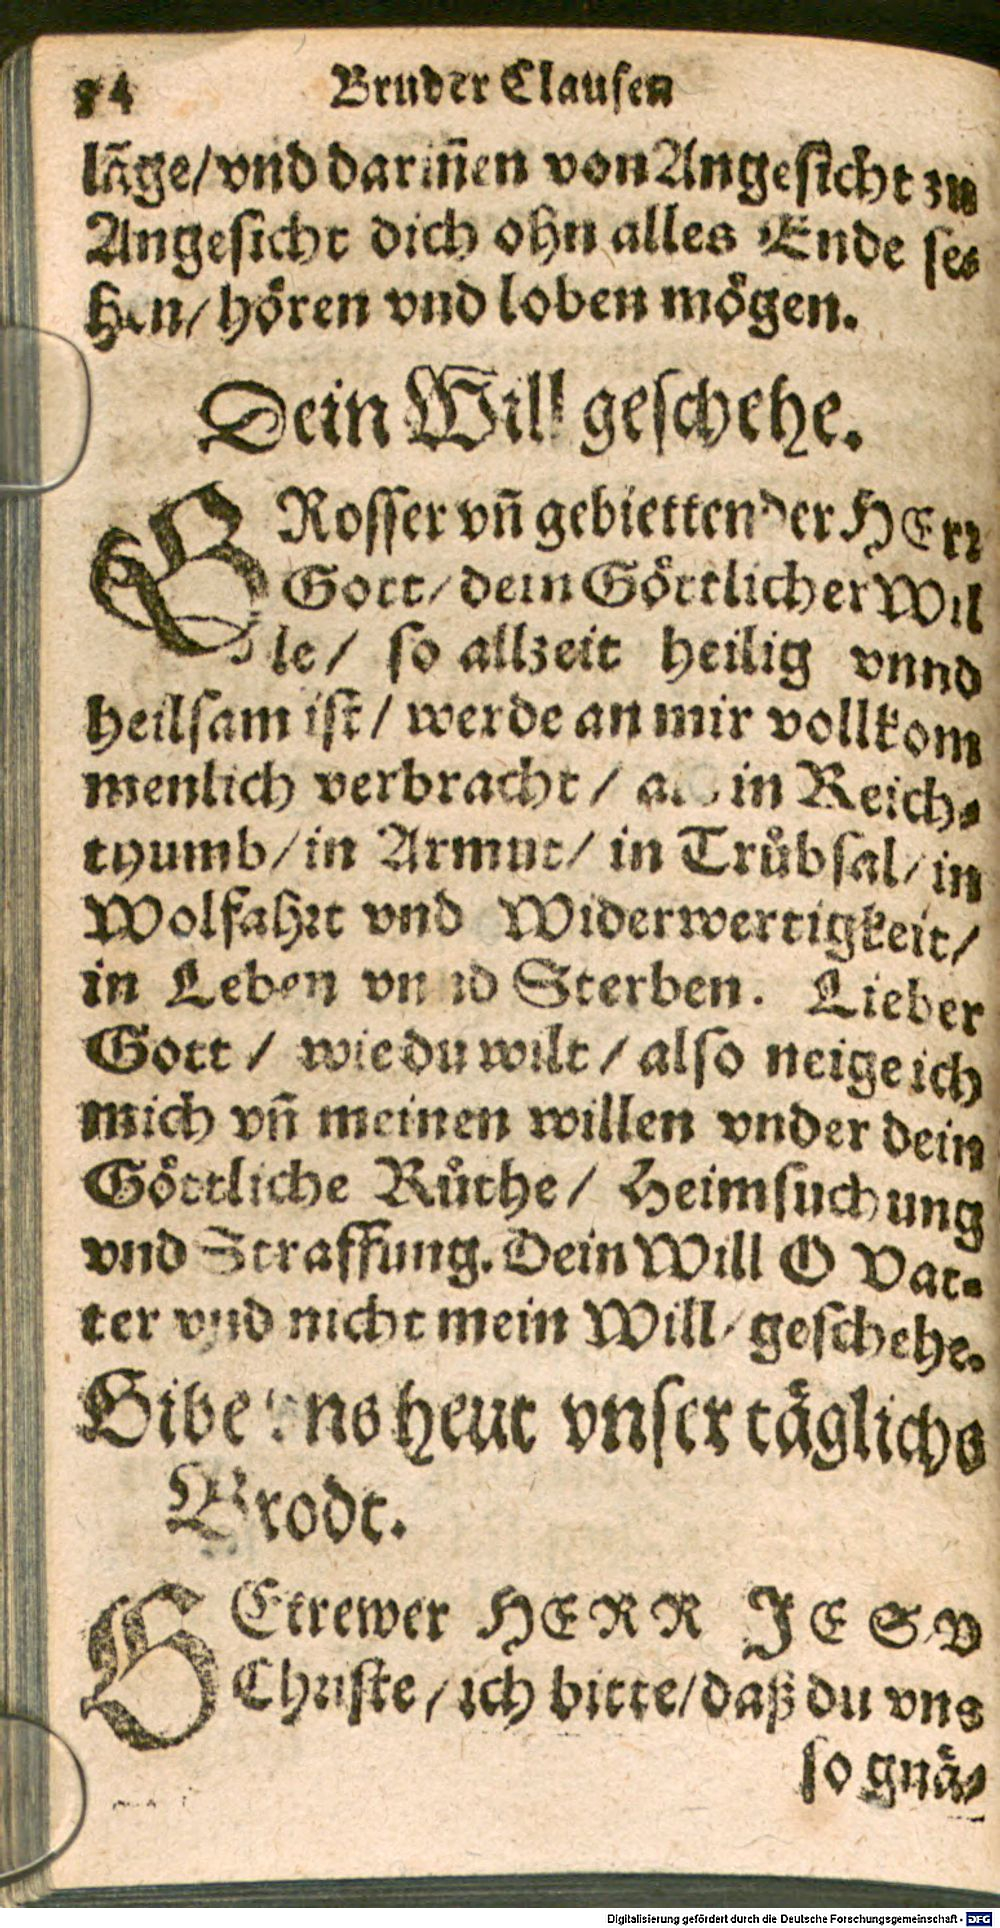 84 Bruder Clausen
lãge/ vnd dariñen von Angesicht zu
Angesicht dich ohn alles Ende se⸗
hen/ hören vnd loben mögen.
Dein Will geschehe.
GRosser vñ gebiettender HErr
Gott/ dein Göttlicher Wil
le/ so allzeit heilig vnnd
heilsam ist/ werde an mir vollkom
menlich verbracht/ als in Reich⸗
thumb/ in Armut/ in Trůbsal/ in
Wolfahrt vnd Widerwertigkeit/
in Leben vnnd Sterben. Lieber
Gott/ wie du wilt/ also neige ich
mich vñ meinen willen vnder dein
Göttliche Růthe/ Heimsuchung
vnd Straffung. Dein Will O Vat⸗
ter vnd nicht mein Will/ geschehe.
Gibe vns heut vnser täglichs
Brodt.
GEtrewer HERR JESV
Christe/ ich bitte/ daß du vns
so gnä⸗
Digitalisierung gefördert durch die Deutsche Forschungsgemeinschaft - DFG